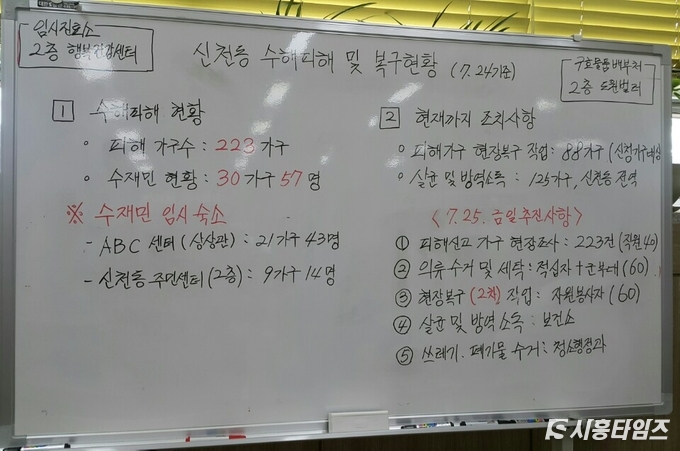 임시진료소
2층 행복건강센터
신천동 수해피해 및 복구현황 (7.24기준)
구호물품배부처
2층 도원빌러
1 수해피해 현황
◦ 피해 가구수 : 223가구
◦ 수재민 현황 : 30가구 57명
※ 수재민 임시숙소
- ABC 센터(상상관) : 21가구 43명
- 신천동 주민센터(2층) : 9가구 14명
2 현재까지 조치사항
◦ 피해가구 현장복구 작업 : 88가구 (신청가구대상
◦ 살균 및 방역소독 : 125가구, 신천동 전역
< 7.25. 금일추진사항 >
① 피해신고 가구 현장조사 : 223건 (직원40
② 의류수거 및 세탁 : 적십자 + 군부대 (60)
③ 현장복구 (2차) 작업 : 자원봉사자 (60)
④ 살균 및 방역소독 : 보건소
⑤ 쓰레기. 폐가물 수거 : 청소행정과
시흥타임즈